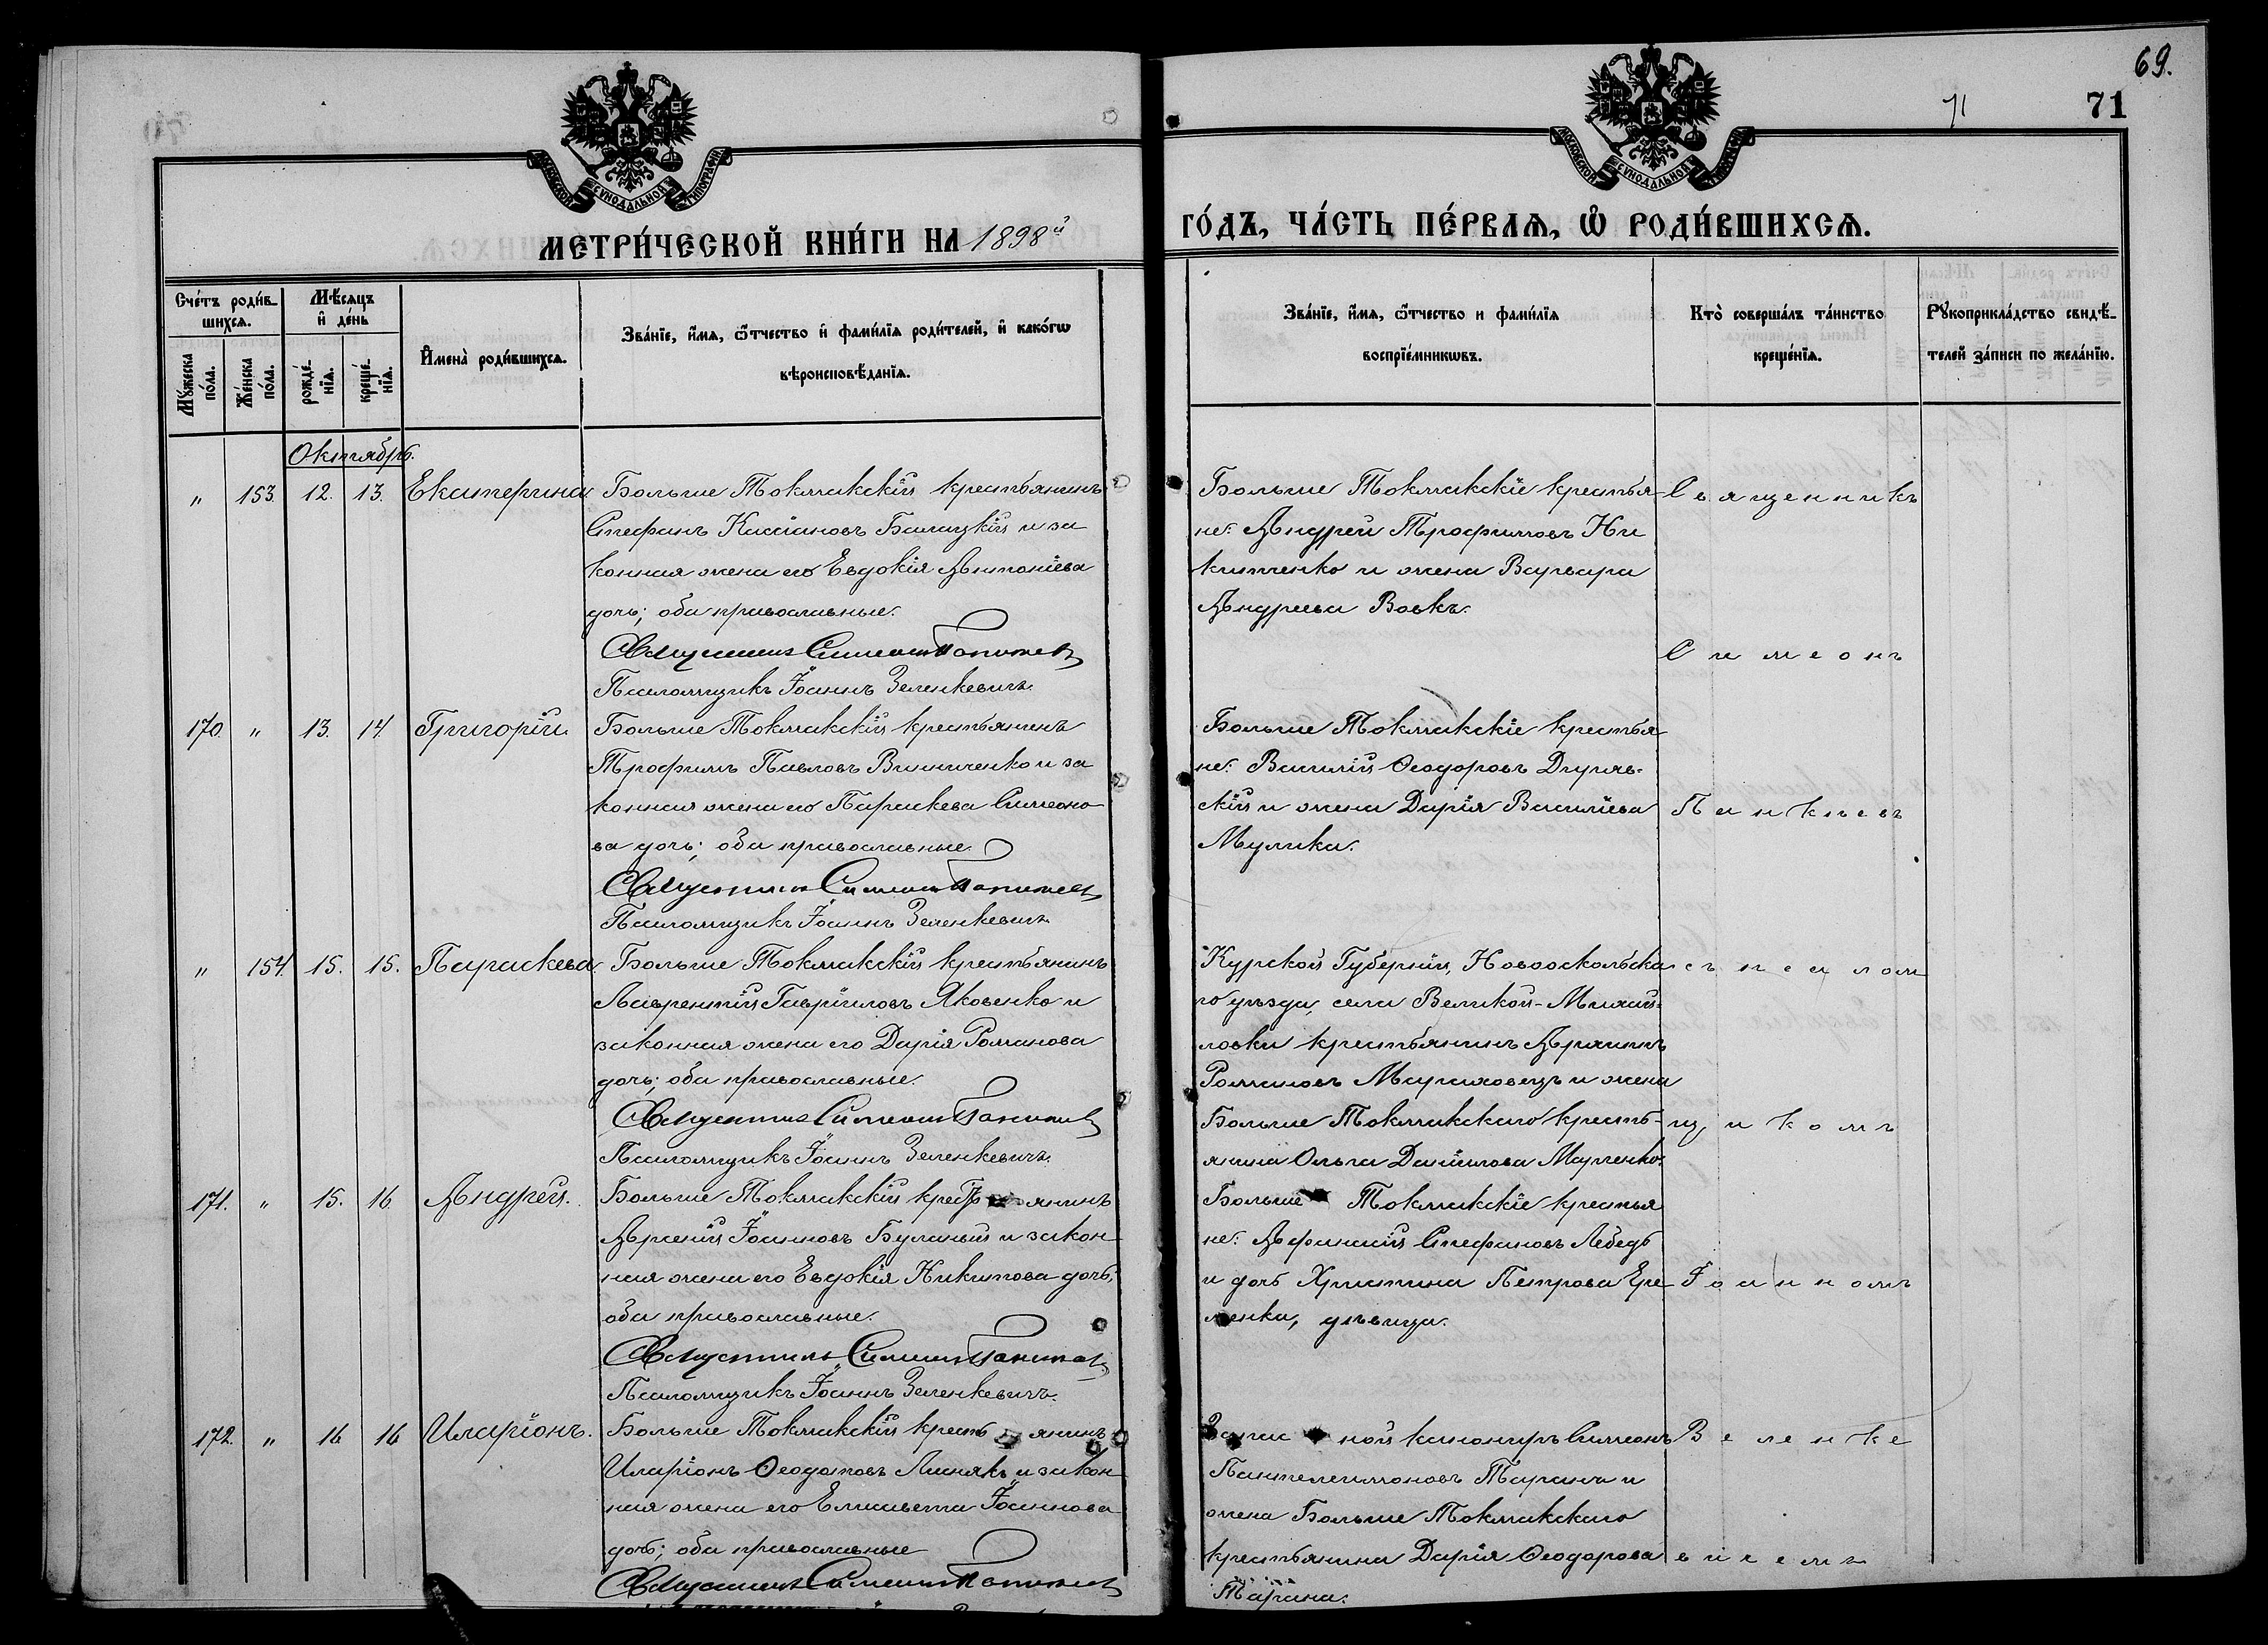 69.
71
71
МОСКОВСКОЙ СѴНОДАЛЬНОЙ ТИПОГРАФІИ
МОСКОВСКОЙ СѴНОДАЛЬНОЙ ТИПОГРАФІИ
МЕТРИ́ЧЕСКОЙ КНИ́ГИ НА 1898й
ГО́ДЪ, ЧА́СТЬ ПЕ́РВАѦ, Ѡ РОДИ́ВШИХСѦ.
Сче́тъ роди́в-
шихсѧ.
Мѣ́сяцъ
и҆ де́нь
Мꙋ́жеска
по́ла.
Же́нска
по́ла.
рожде́-
нїѧ.
креще́-
нїѧ.
И҆мена̀ роди́вшихсѧ.
Зва́нїе, и҆́мѧ, ѻ҆́тчество и҆ фами́лїѧ роди́телей, и҆ како́гѡ
вѣроисповѣ́данїѧ.
Зва́нїе, и҆́мѧ, ѻ҆́тчество и фами́лїѧ
воспрїе́мникѡвъ.
Кто̀ соверша́лъ та́инство
креще́нїѧ.
Рꙋкоприкла́дство свидѣ́-
телей за́писи по жела́нїю.
Октябрь.
" 153. 12. 13. Екатерина
Больше Токмакскій крестьянинъ
Стефанъ Кассіановъ Балицкій и за
конная жена его Евдокія Антоніева
дочь; оба православные.
Псаломщикъ Іоаннъ Зеленкевичъ.
Больше Токмакскіе крестья-
не: Андрей Трофимовъ Ни
китченко и жена Варвара
Андреева Вовкъ.
Священникъ
Симеонъ
170. " 13. 14. Григорій.
Больше Токмакскій крестьянинъ
Трофимъ Павловъ Винниченко и за
конная жена его Параскева Симеоно
ва дочь; оба православные.
Псаломщикъ Іоаннъ Зеленкевичъ
Больше Токмакскіе крестья
не: Василій Ѳеодоровъ
скій и жена Дарія Василіева
Мулика.
Панкѣевъ
" 154. 15. 15. Параскева
Больше Токмакскій крестьянинъ
Лаврентій Гавріиловъ Яковенко и
законная жена его Дарія Романова
дочь; оба православные.
Псаломщикъ Іоаннъ Зеленкевичъ.
Курской Губерніи, Новооскольска
го уѣзда, села Великой-Михай-
ловки крестьянинъ
Романовъ Мараховецъ и жена
Больше Токмакскаго кресть-
янина Ольга Даніилова Марченко.
съ псалом
щикомъ
171. " 15. 16. Андрей.
Больше Токмакскій крестьянинъ
Арсеній Іоанновъ Буланый и закон
ная жена его Евдокія Никитова дочь;
оба православные.
Псаломщикъ Іоаннъ Зеленкевичъ.
Больше Токмакскіе крестья
не: Афанасій Стефановъ Лебедь
и дочь Христина Петрова Ере
менка, дѣвица.
Іоанномъ
172. " 16 16 Иларіонъ.
Больше Токмакскій крестьянинъ
Иларіонъ Ѳеодотовъ Лисняк и закон
ная жена его Елисавета Іоаннова
дочь; оба православные
Запасной канониръ Симеонъ
Пантелеимоновъ Таранъ и
жена Больше Токмакскаго
крестьянина Дарія Ѳеодорова
Тарана.
Зеленке
вичемъ